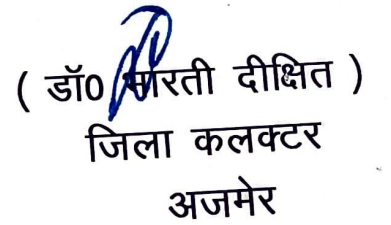 ( डॉ0 भारती दीक्षित )
जिला कलक्टर
अजमेर